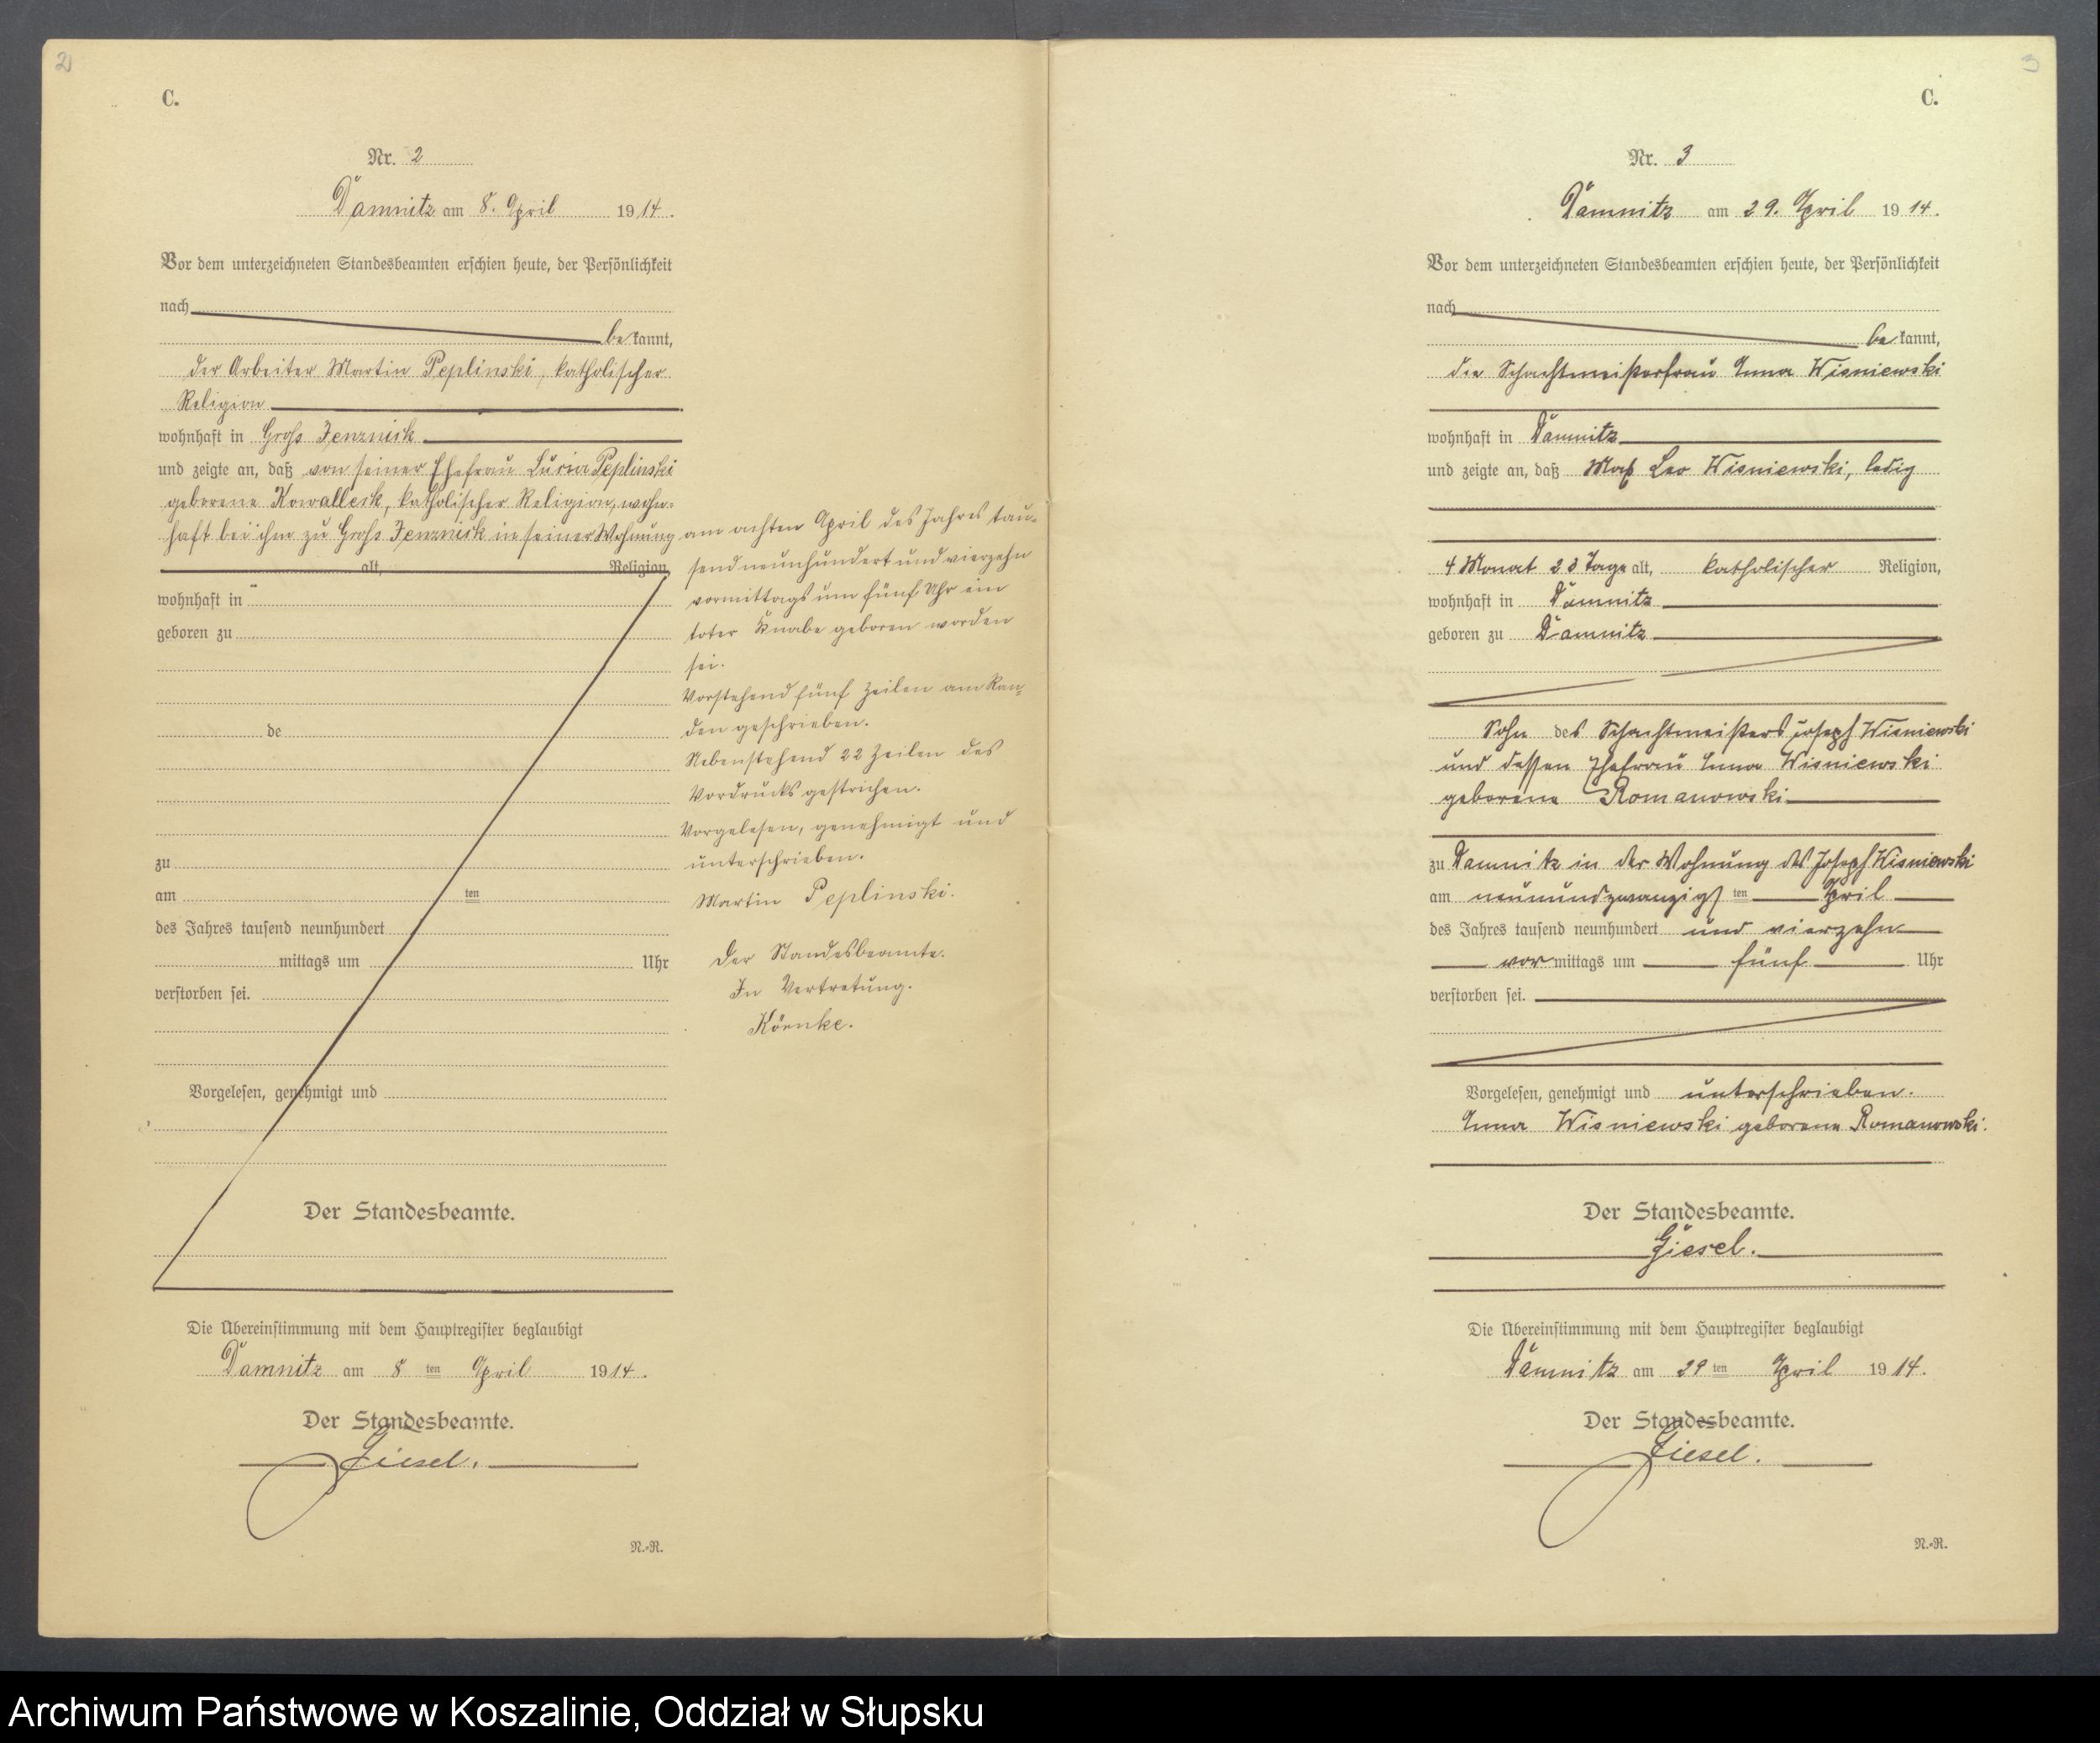 2
C.
Nr. 2
Damnitz am 8. April 1914.
Vor dem unterzeichneten Standesbeamten erschien heute, der Persönlichkeit
nach
bekannt,
der Arbeiter Martin Peplinski, katholischer
Religion
wohnhaft in Groß Jenznick
und zeigte an, daß von seiner Ehefrau Lucia Peplinski
geborene Kowalleck, katholischer Religion, wohn-
haft bei ihm zu Groß Jenznick in seiner Wohnung
alt, Religion,
wohnhaft in
geboren zu
de
zu
am ten
des Jahres tausend neunhundert
mittags um Uhr
verstorben sei.
Vorgelesen, genehmigt und
Der Standesbeamte.
am achten April des Jahres tau-
send neunhundert und vierzehn
vormittags um fünf Uhr ein
toter Knabe geboren worden
sei.
Vorstehend fünf Zeilen am Ran-
den geschrieben.
Nebenstehend 22 Zeilen des
Vordrucks gestrichen.
Vorgelesen, genehmigt und
unterschrieben.
Martin Peplinski.
Der Standesbeamte.
In Vertretung.
Die Übereinstimmung mit dem Hauptregister beglaubigt
Damnitz am 8ten April 1914.
Der Standesbeamte.
Giesel.
N.-R.
3
C.
Nr. 3
Damnitz am 29. April 1914.
Vor dem unterzeichneten Standesbeamten erschien heute, der Persönlichkeit
nach
bekannt,
die Schachtmeisterfrau Anna Wisniewski
wohnhaft in Damnitz
und zeigte an, daß Max Leo Wisniewski, ledig
4 Monat 23 Tage alt, katholischer Religion,
wohnhaft in Damnitz
geboren zu Damnitz
Sohn des Schachtmeisters Joseph Wisniewski
und dessen Ehefrau Anna Wisniewski
geborene Romanowski
zu Damnitz in der Wohnung des Joseph Wisniewski
am neunundzwanzigsten April
des Jahres tausend neunhundert und vierzehn
vormittags um fünf Uhr
verstorben sei.
Vorgelesen, genehmigt und unterschrieben.
Anna Wisniewski geborene Romanowski.
Der Standesbeamte.
Giesel.
Die Übereinstimmung mit dem Hauptregister beglaubigt
Damnitz am 29ten April 1914.
Der Standesbeamte.
Giesel.
N.-R.
Archiwum Państwowe w Koszalinie, Oddział w Słupsku